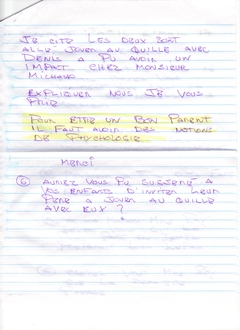 JE CITE LES DEUX SONT
ALLÉ JOUER AU QUILLE AVEC
DENIS A PU AVOIR UN
IMPACT CHEZ MONSIEUR
MICHAUD
EXPLIQUER NOUS JE VOUS
PRIE
POUR ETRE UN BON PARENT
IL FAUT AVOIR DES NOTIONS
DE PSYCHOLOGIE
MERCI
⑥ AURIEZ VOUS PU SUGÉRÉ A
VOS ENFANTS D'INVITER LEUR
PERE A JOUER AU QUILLE
AVEC EUX ?